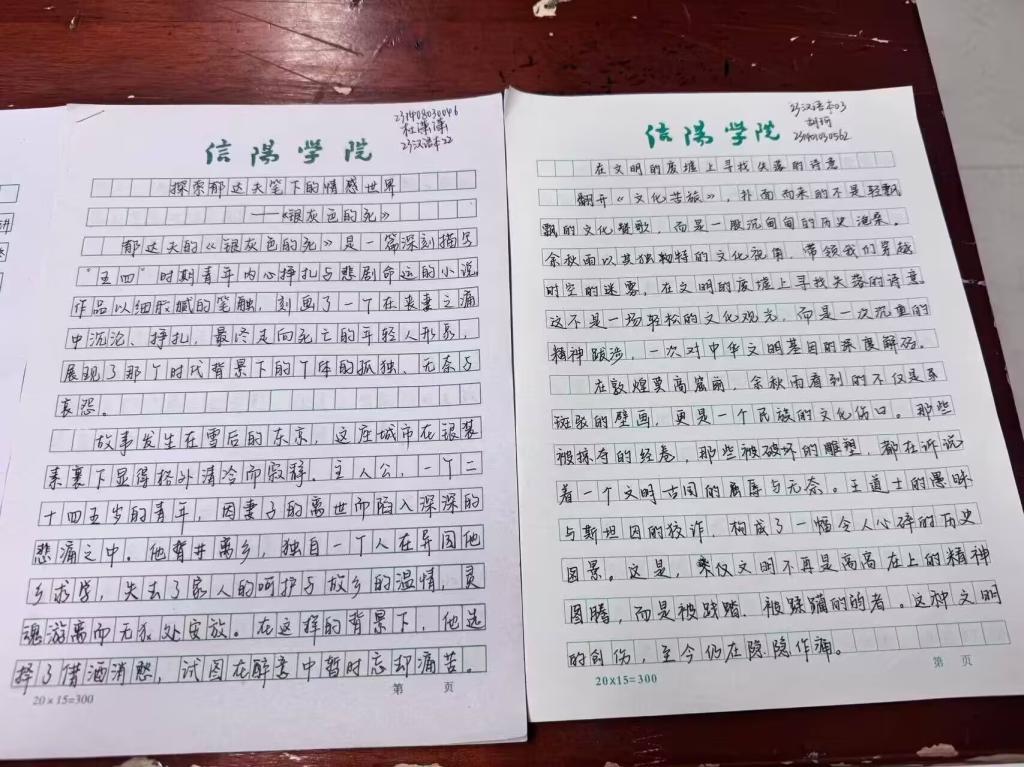 讲
231408030046
23汉语本22
信阳学院
探索郁达夫笔下的情感世界
——《银灰色的死》
郁达夫的《银灰色的死》是一篇深刻描写
“五四”时期青年内心挣扎与悲剧命运的小说
作品以细腻腻的笔触，刻画了一个在丧妻之痛
中沉沦、挣扎，最终走向死亡的年轻人形象，
展现了那个时代背景下的个体的孤独、无奈与
哀怨。
故事发生在雪后的东京，这座城市在银装
素裹下显得格外清冷而寂静。主人公，一个二
十四五岁的青年，因妻子的离世而陷入深深的
悲痛之中。他背井离乡，独自一个人在异国他
乡求学，失去了家人的呵护与故乡的温情，灵
魂游离而无处安放。在这样的背景下，他选
择了借酒消愁，试图在醉意中暂时忘却痛苦。
20×15=300
第 页
23汉语本03
胡珂
231401030562
信阳学院
在文明的废墟上寻找失落的诗意
翻开《文化苦旅》，扑面而来的不是轻飘
飘的文化赞歌，而是一股沉甸甸的历史沧桑。
余秋雨以其独特的文化视角，带领我们穿越
时空的迷雾，在文明的废墟上寻找失落的诗意
这不是一场轻松的文化观光，而是一次沉重的
精神跋涉，一次对中华文明基因的深度解码。
在敦煌莫高窟前，余秋雨看到的不仅是
斑驳的壁画，更是一个民族的文化伤口。那些
被掠夺的经卷，那些被破坏的雕塑，都在诉说
着一个文明古国的屈辱与无奈。王道士的愚昧
与斯坦因的狡诈，构成了一幅令人心碎的历史
图景。这是，文明不再是高高在上的精神
图腾，而是被践踏、被蹂躏的的者。这种文明
的创伤，至今仍在隐隐作痛。
20×15=300
第 页